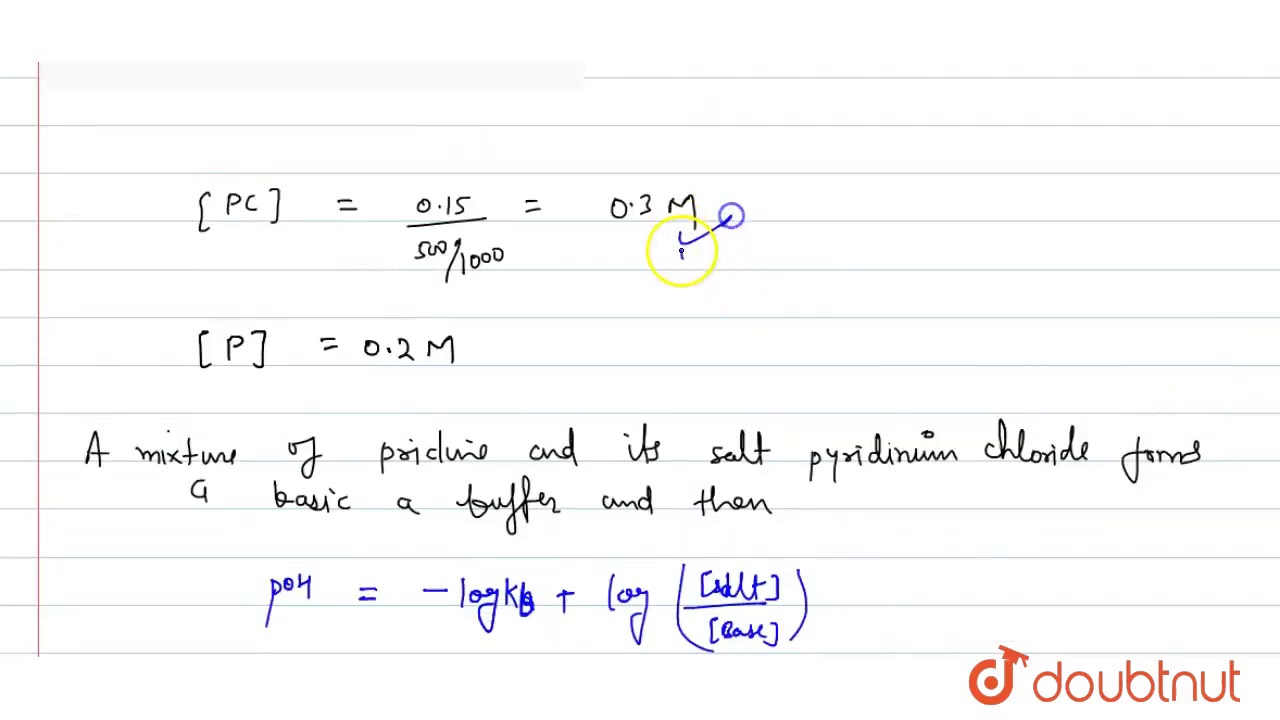 [PC] = 0.15 / 500/1000 = 0.3 M
[P] = 0.2 M
A mixture of pricline and its salt pyridinium chloride forms
a basic a buffer and then
pOH = - log Kb + log ([salt] / [Base])
doubtnut